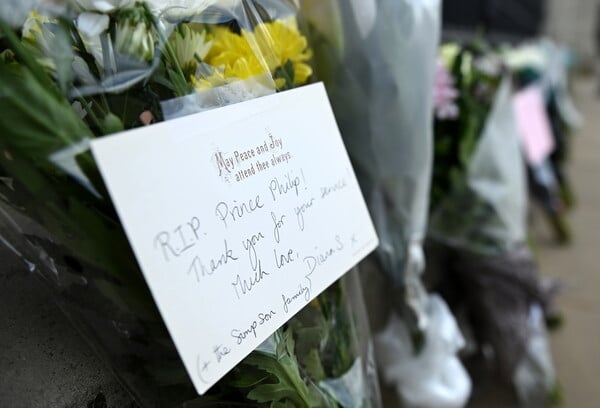 May Peace and Joy
attend thee always.
R.I.P. Prince Philip!
Thank you for your service!
Much love, Diana S. x
(+ the Simpson family)